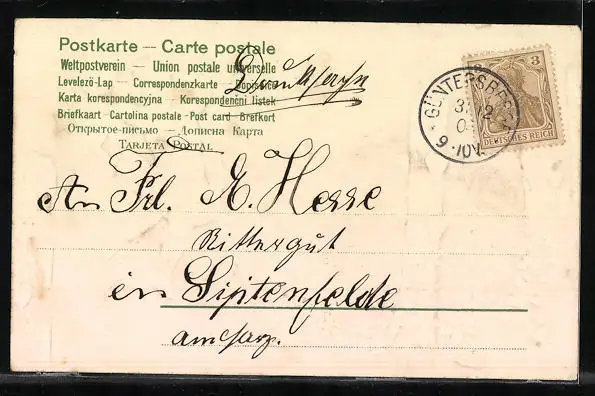 Postkarte – Carte postale
Weltpostverein – Union postale universelle
Levelező-Lap – Correspondenzkarte – Dopisnice
Karta korespondencyjna – Korespondenční listek
Briefkaart – Cartolina postale – Post card – Brefkort
Открытое-письмо – Дописна Карта
TARJETA POSTAL
3
DEUTSCHES REICH
GÜNTERSBERGE
31 12
9-10V.
An Frl. A. Hesse
Rittergut
in Siptenfelde
am Harz.